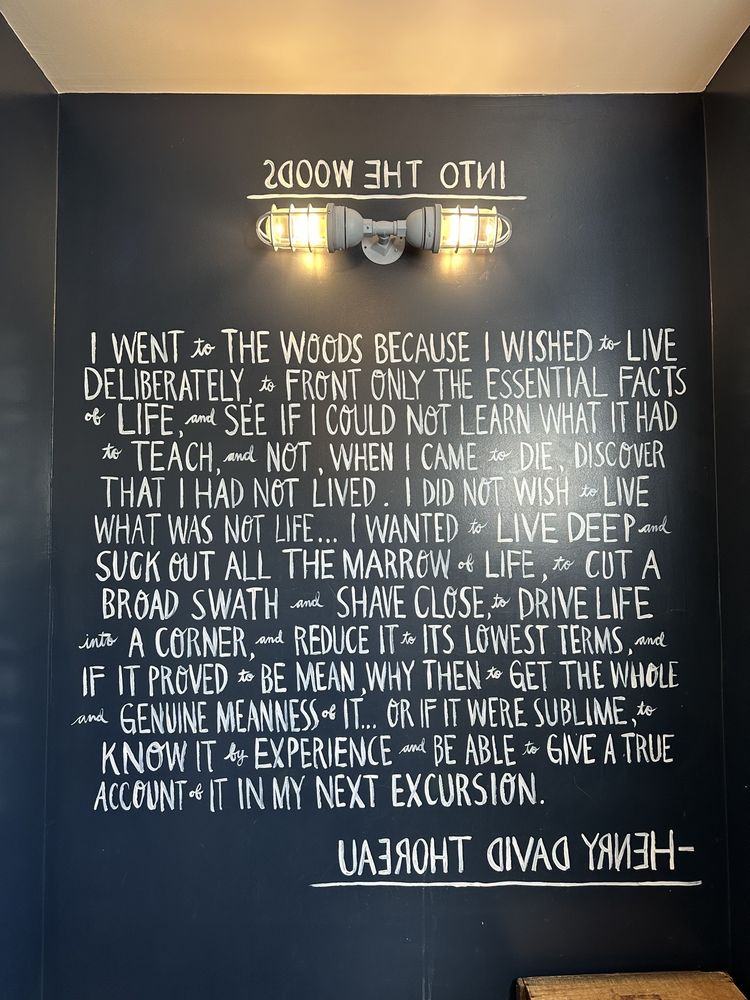 INTO THE WOODS
I WENT to THE WOODS BECAUSE I WISHED to LIVE
DELIBERATELY, to FRONT ONLY THE ESSENTIAL FACTS
of LIFE, and SEE IF I COULD NOT LEARN WHAT IT HAD
to TEACH, and NOT, WHEN I CAME to DIE, DISCOVER
THAT I HAD NOT LIVED. I DID NOT WISH to LIVE
WHAT WAS NOT LIFE... I WANTED to LIVE DEEP and
SUCK OUT ALL THE MARROW of LIFE, to CUT A
BROAD SWATH and SHAVE CLOSE, to DRIVE LIFE
into A CORNER, and REDUCE IT to ITS LOWEST TERMS, and
IF IT PROVED to BE MEAN, WHY THEN to GET THE WHOLE
and GENUINE MEANNESS of IT... OR IF IT WERE SUBLIME, to
KNOW IT by EXPERIENCE and BE ABLE to GIVE A TRUE
ACCOUNT of IT IN MY NEXT EXCURSION.
-HENRY DAVID THOREAU